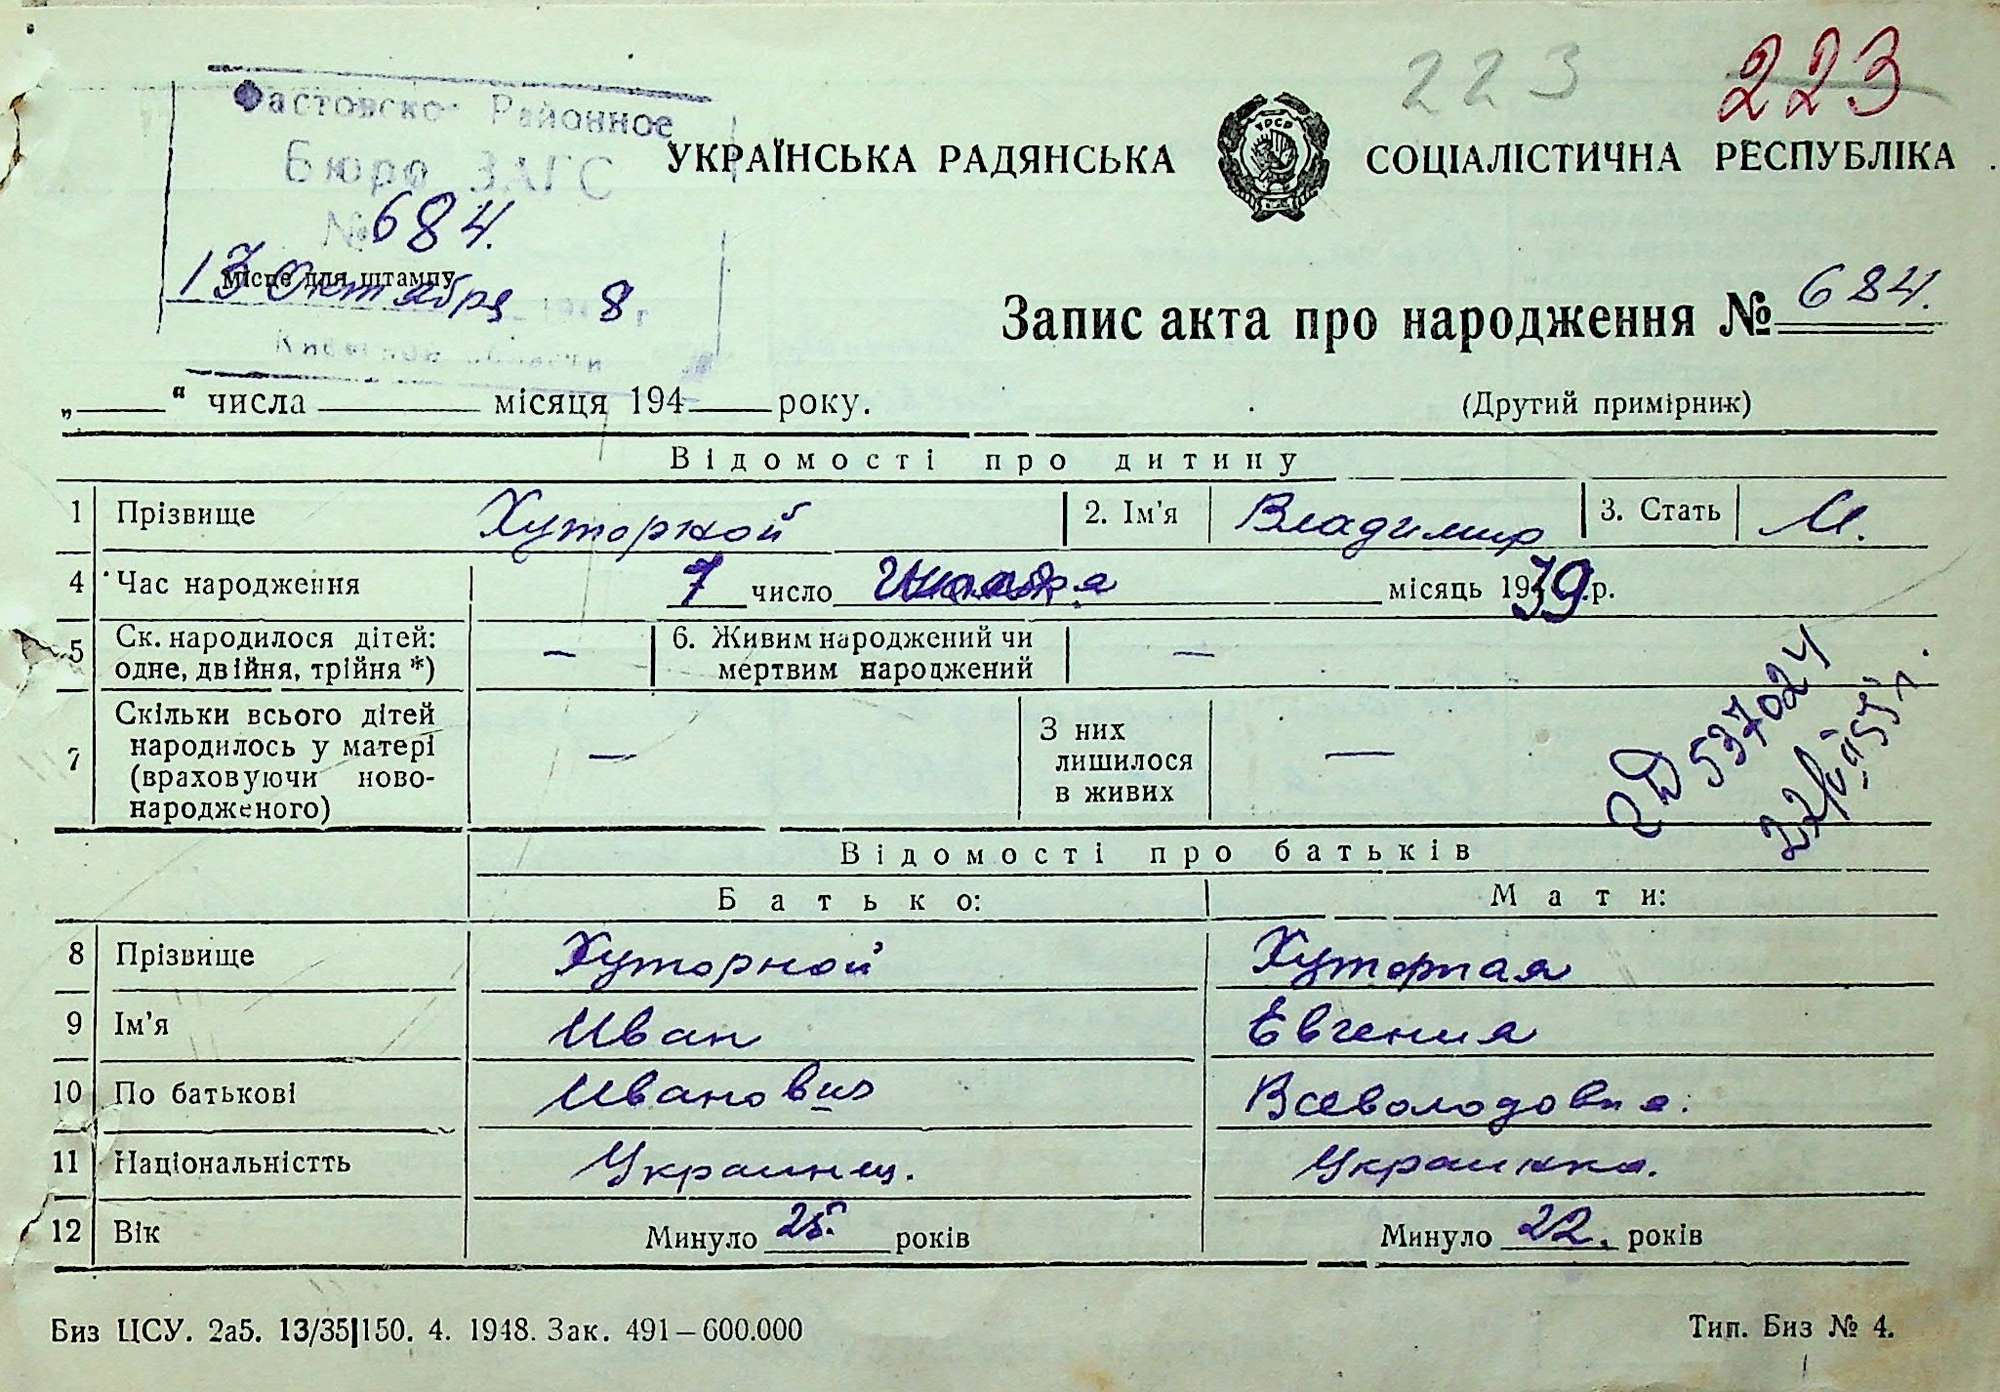 223 223
Фастовско Районное
Бюро ЗАГС
№ 684.
місце для штампу
13 Октября 8 г
УКРАЇНСЬКА РАДЯНСЬКА СОЦІАЛІСТИЧНА РЕСПУБЛІКА
УРСР
Запис акта про народження № 684.
„ “ числа місяця 194 року.
(Другий примірник)
Відомості про дитину
1 Прізвище Хуторной 2. Ім’я Владимир 3. Стать М.
4 Час народження 7 число місяць 1939 р.
5 Ск. народилося дітей: одне, двійня, трійня *) — 6. Живим народжений чи мертвим народжений —
7 Скільки всього дітей народилось у матері (враховуючи ново-народженого) — З них лишилося в живих —
537024
Відомості про батьків
Батько: Мати:
8 Прізвище Хуторной Хуторная
9 Ім’я Иван Евгения
10 По батькові Иванович Всеволодовна.
11 Національністть Украинец. Украинка.
12 Вік Минуло 25. років Минуло 22. років
Биз ЦСУ. 2а5. 13/35|150. 4. 1948. Зак. 491–600.000
Тип. Биз № 4.